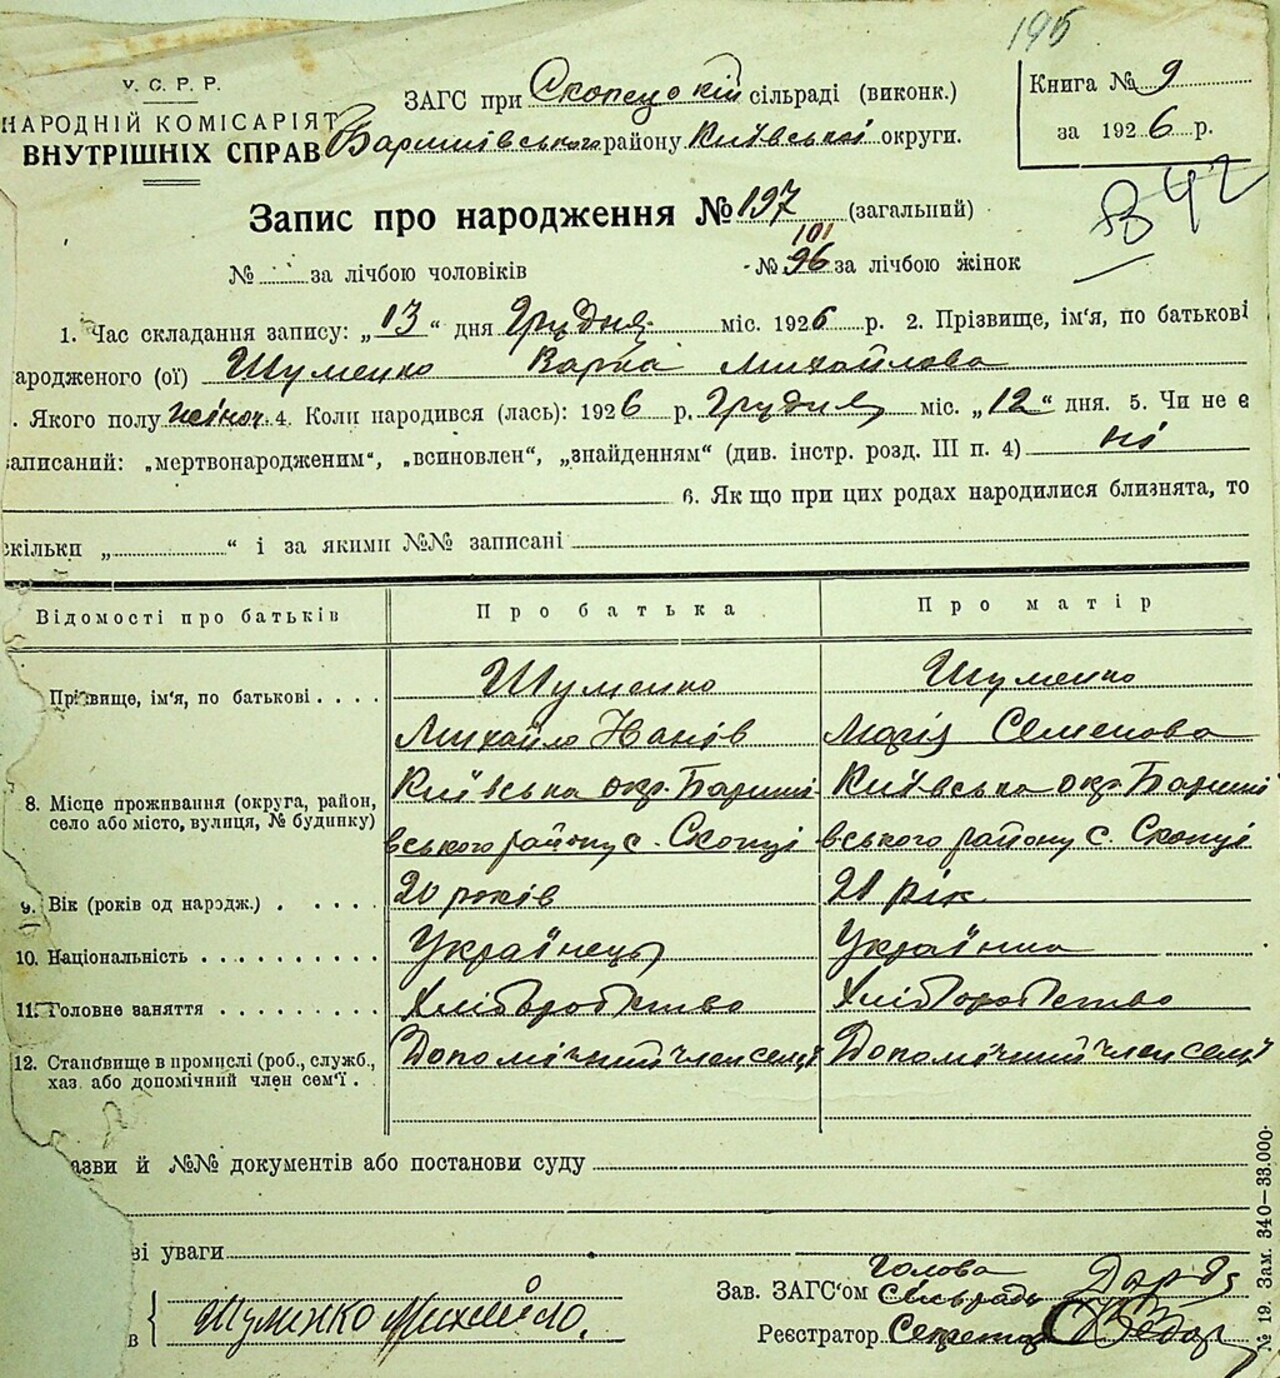 195
У. С. Р. Р.
НАРОДНІЙ КОМІСАРІЯТ
ВНУТРІШНІХ СПРАВ
ЗАГС при Скопецокій сільраді (виконк.)
Баришівського району Київської округи.
Книга № 9
за 1926 р.
В 42
Запис про народження № 197 (загальний)
101
№ за лічбою чоловіків № 96 за лічбою жінок
1. Час складання запису: „13“ дня Грудня міс. 1926 р. 2. Прізвище, ім'я, по батькові
ародженого (ої) Шуменко Варка Михайлова
. Якого полу жіноч. 4. Коли народився (лась): 1926 р. Грудня міс. „12“ дня. 5. Чи не є
записаний: „мертвонародженим“, „всиновлен“, „знайденням“ (див. інстр. розд. III п. 4) ні
6. Як що при цих родах народилися близнята, то
скільки „ “ і за якими №№ записані
Відомості про батьків Про батька Про матір
Прізвище, ім'я, по батькові . . . . Шуменко Шуменко
Михайло Іванів Марія Семенова
8. Місце проживання (округа, район, село або місто, вулиця, № будинку) Київська окр. Бариші- Київська окр. Бариші
вського району с. Скопці вського району с. Скопці
9. Вік (років од народж.) . . . . . 20 років 21 рік
10. Національність . . . . . . . . . . Українець Українка
11. Головне заняття . . . . . . . . . Хліборобство Хліборобство
12. Становище в промислі (роб., служб., хаз. або допомічний член сем'ї . Допомічний член семї Допомічний член семї
азви й №№ документів або постанови суду
ві уваги
Голова
Зав. ЗАГС'ом Сільради
в { Шуменко Михайло.
Реєстратор Секретар
№ 19. Зам. 340—33.000.